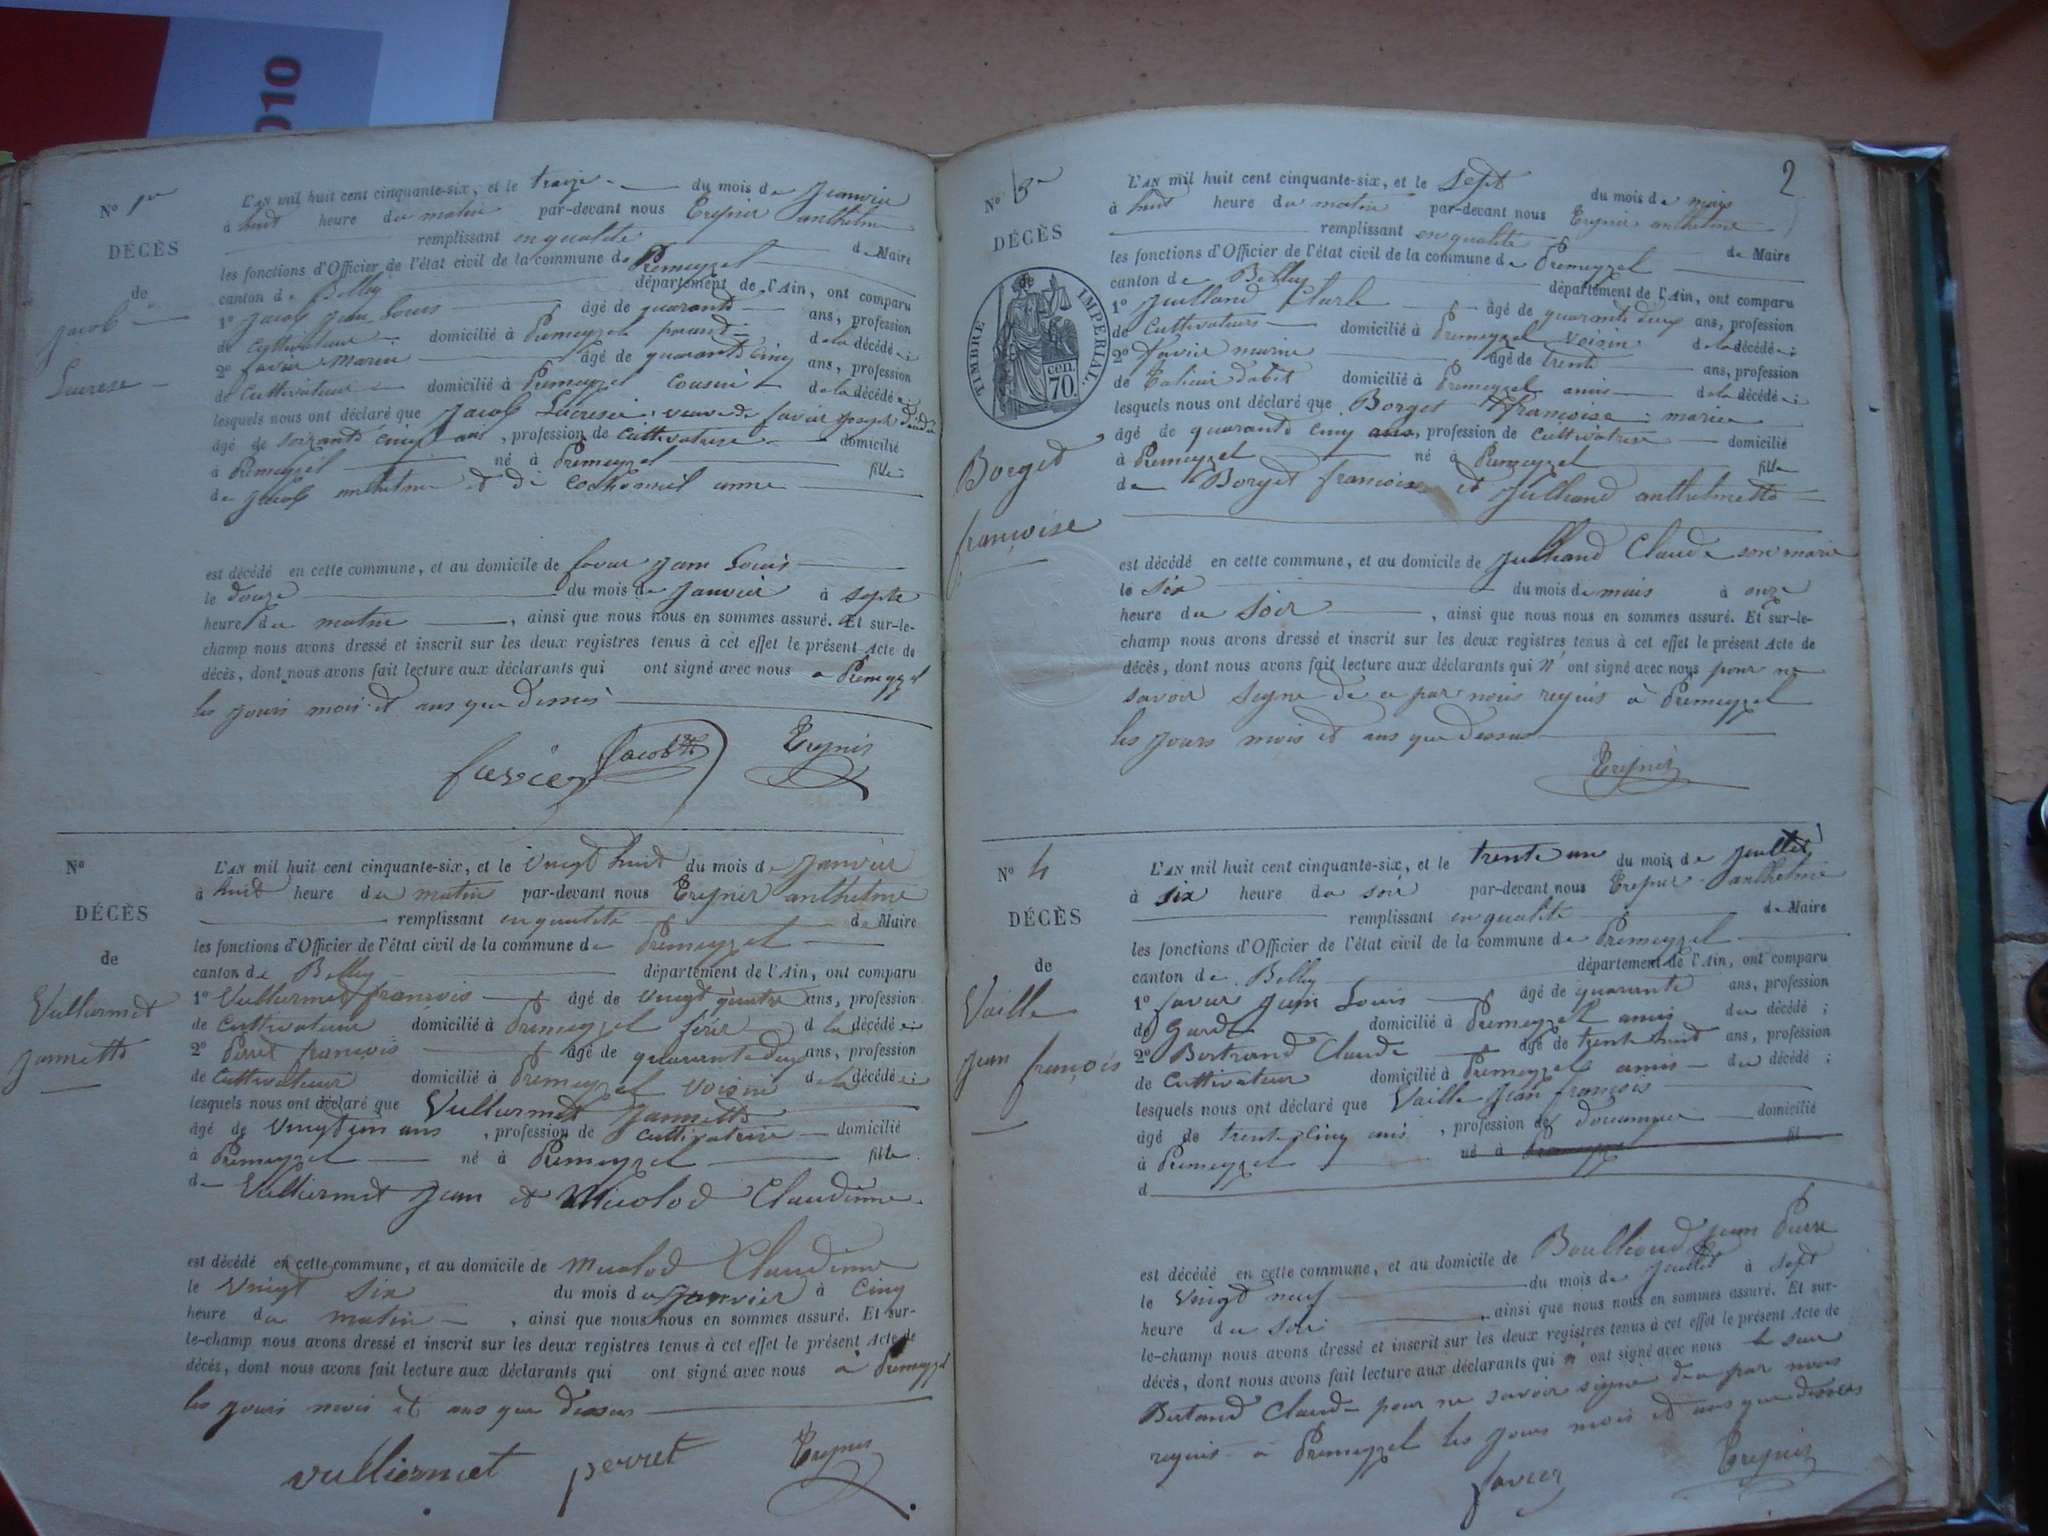 010
N° 1er
DÉCÈS
de
Jacob
Lucrese
L'AN mil huit cent cinquante-six, et le treize du mois de Janvier
à huit heure du matin par-devant nous Treynier anthelme
remplissant en qualité de Maire
les fonctions d'Officier de l'état civil de la commune de Premeyzel
canton de Belley département de l'Ain, ont comparu
1° Jacob Jean Louis âgé de quarante ans, profession
de Cultivateur domicilié à Premeyzel de la décédée;
2° favier Marin âgé de quarante cinq ans, profession
de Cultivateur domicilié à Premeyzel cousin de la décédée;
lesquels nous ont déclaré que Jacob Lucresie veuve de favier Joseph
âgé de soixante cinq ans, profession de Cultivatrise domicilié
à Premeyzel né à Premeyzel fille
de Jacob anthelme et de Cochonnel anne
est décédé en cette commune, et au domicile de favier Jean Louis
le douze du mois de Janvier à septe
heure du matin, ainsi que nous nous en sommes assuré. Et sur-le-
champ nous avons dressé et inscrit sur les deux registres tenus à cet effet le présent Acte de
décès, dont nous avons fait lecture aux déclarants qui ont signé avec nous a Premeyzel
les jours mois et ans que dessus
favier Jacob Treynier
N°
DÉCÈS
de
Vulliermet
Jannette
L'AN mil huit cent cinquante-six, et le vingt huit du mois de Janvier
à huit heure du matin par-devant nous Treynier anthelme
remplissant en qualité de Maire
les fonctions d'Officier de l'état civil de la commune de Premeyzel
canton de Belley département de l'Ain, ont comparu
1° Vulliermet francois âgé de vingt quatre ans, profession
de Cultivateur domicilié à Premeyzel frére d la décédée;
2° Perret francois âgé de quarante deux ans, profession
de Cultivateur domicilié à Premeyzel voisin de la décédée;
lesquels nous ont déclaré que Vulliermet Jannette
âgé de vingt un ans, profession de Cultivatrise domicilié
à Premeyzel né à Premeyzel fille
de Vulliermet Jean et Micolod Claudinne
est décédé en cette commune, et au domicile de Micolod Claudinne
le vingt six du mois de Janvier à Cinq
heure du matin, ainsi que nous nous en sommes assuré. Et sur-
le-champ nous avons dressé et inscrit sur les deux registres tenus à cet effet le présent Acte de
décès, dont nous avons fait lecture aux déclarants qui ont signé avec nous a Premeyzel
les jours mois et ans que dessus
vulliermet perret Treynier
2
N° 3e
DÉCÈS
TIMBRE IMPÉRIAL.
70 cen.
Borget
françoise
L'AN mil huit cent cinquante-six, et le Sept du mois de mais
à huit heure du matin par-devant nous Treynier anthelme
remplissant en qualité de Maire
les fonctions d'Officier de l'état civil de la commune de Premeyzel
canton de Belley département de l'Ain, ont comparu
1° Julliand Charle âgé de quarante deux ans, profession
de Cultivateur domicilié à Premeyzel voisin de la décédée;
2° favier marin âgé de trente ans, profession
de domicilié à Premeyzel amis de la décédée;
lesquels nous ont déclaré que Borget françoise marie
âgé de quarante cinq ans, profession de Cultivatrise domicilié
à Premeyzel né à Premeyzel fille
de Borget francois et Julliand anthelmette
est décédé en cette commune, et au domicile de Julliand Claude son marie
le six du mois de mais à onze
heure du Soir, ainsi que nous nous en sommes assuré. Et sur-le-
champ nous avons dressé et inscrit sur les deux registres tenus à cet effet le présent Acte de
décès, dont nous avons fait lecture aux déclarants qui n'ont signé avec nous pour ne
savoir Signe de ce par nous requis a Premeyzel
les jours mois et ans que dessus
Treynier
N° 4
DÉCÈS
de
Vaille
Jean françois
L'AN mil huit cent cinquante-six, et le trente un du mois de Juillet
à six heure du soir par-devant nous Treynier anthelme
remplissant en qualité de Maire
les fonctions d'Officier de l'état civil de la commune de Premeyzel
canton de Belley département de l'Ain, ont comparu
1° favier Jean Louis âgé de quarante ans, profession
de Garde domicilié à Premeyzel amis du décédé;
2° Bertrand Claude âgé de trente huit ans, profession
de Cultivateur domicilié à Premeyzel amis du décédé;
lesquels nous ont déclaré que Vaille Jean françois
âgé de trente cinq ans, profession de douannier domicilié
à Premeyzel né à Premeyzel fil
d
est décédé en cette commune, et au domicile de Boulliand Jean Pierre
le vingt neuf du mois de Juillet à sept
heure du soir, ainsi que nous nous en sommes assuré. Et sur-
le-champ nous avons dressé et inscrit sur les deux registres tenus à cet effet le présent Acte de
décès, dont nous avons fait lecture aux déclarants qui n'ont signé avec nous le sieur
Bertrand Claude pour ne savoir signe de ce par nous
requis a Premeyzel les jours mois et ans que dessus
favier Treynier